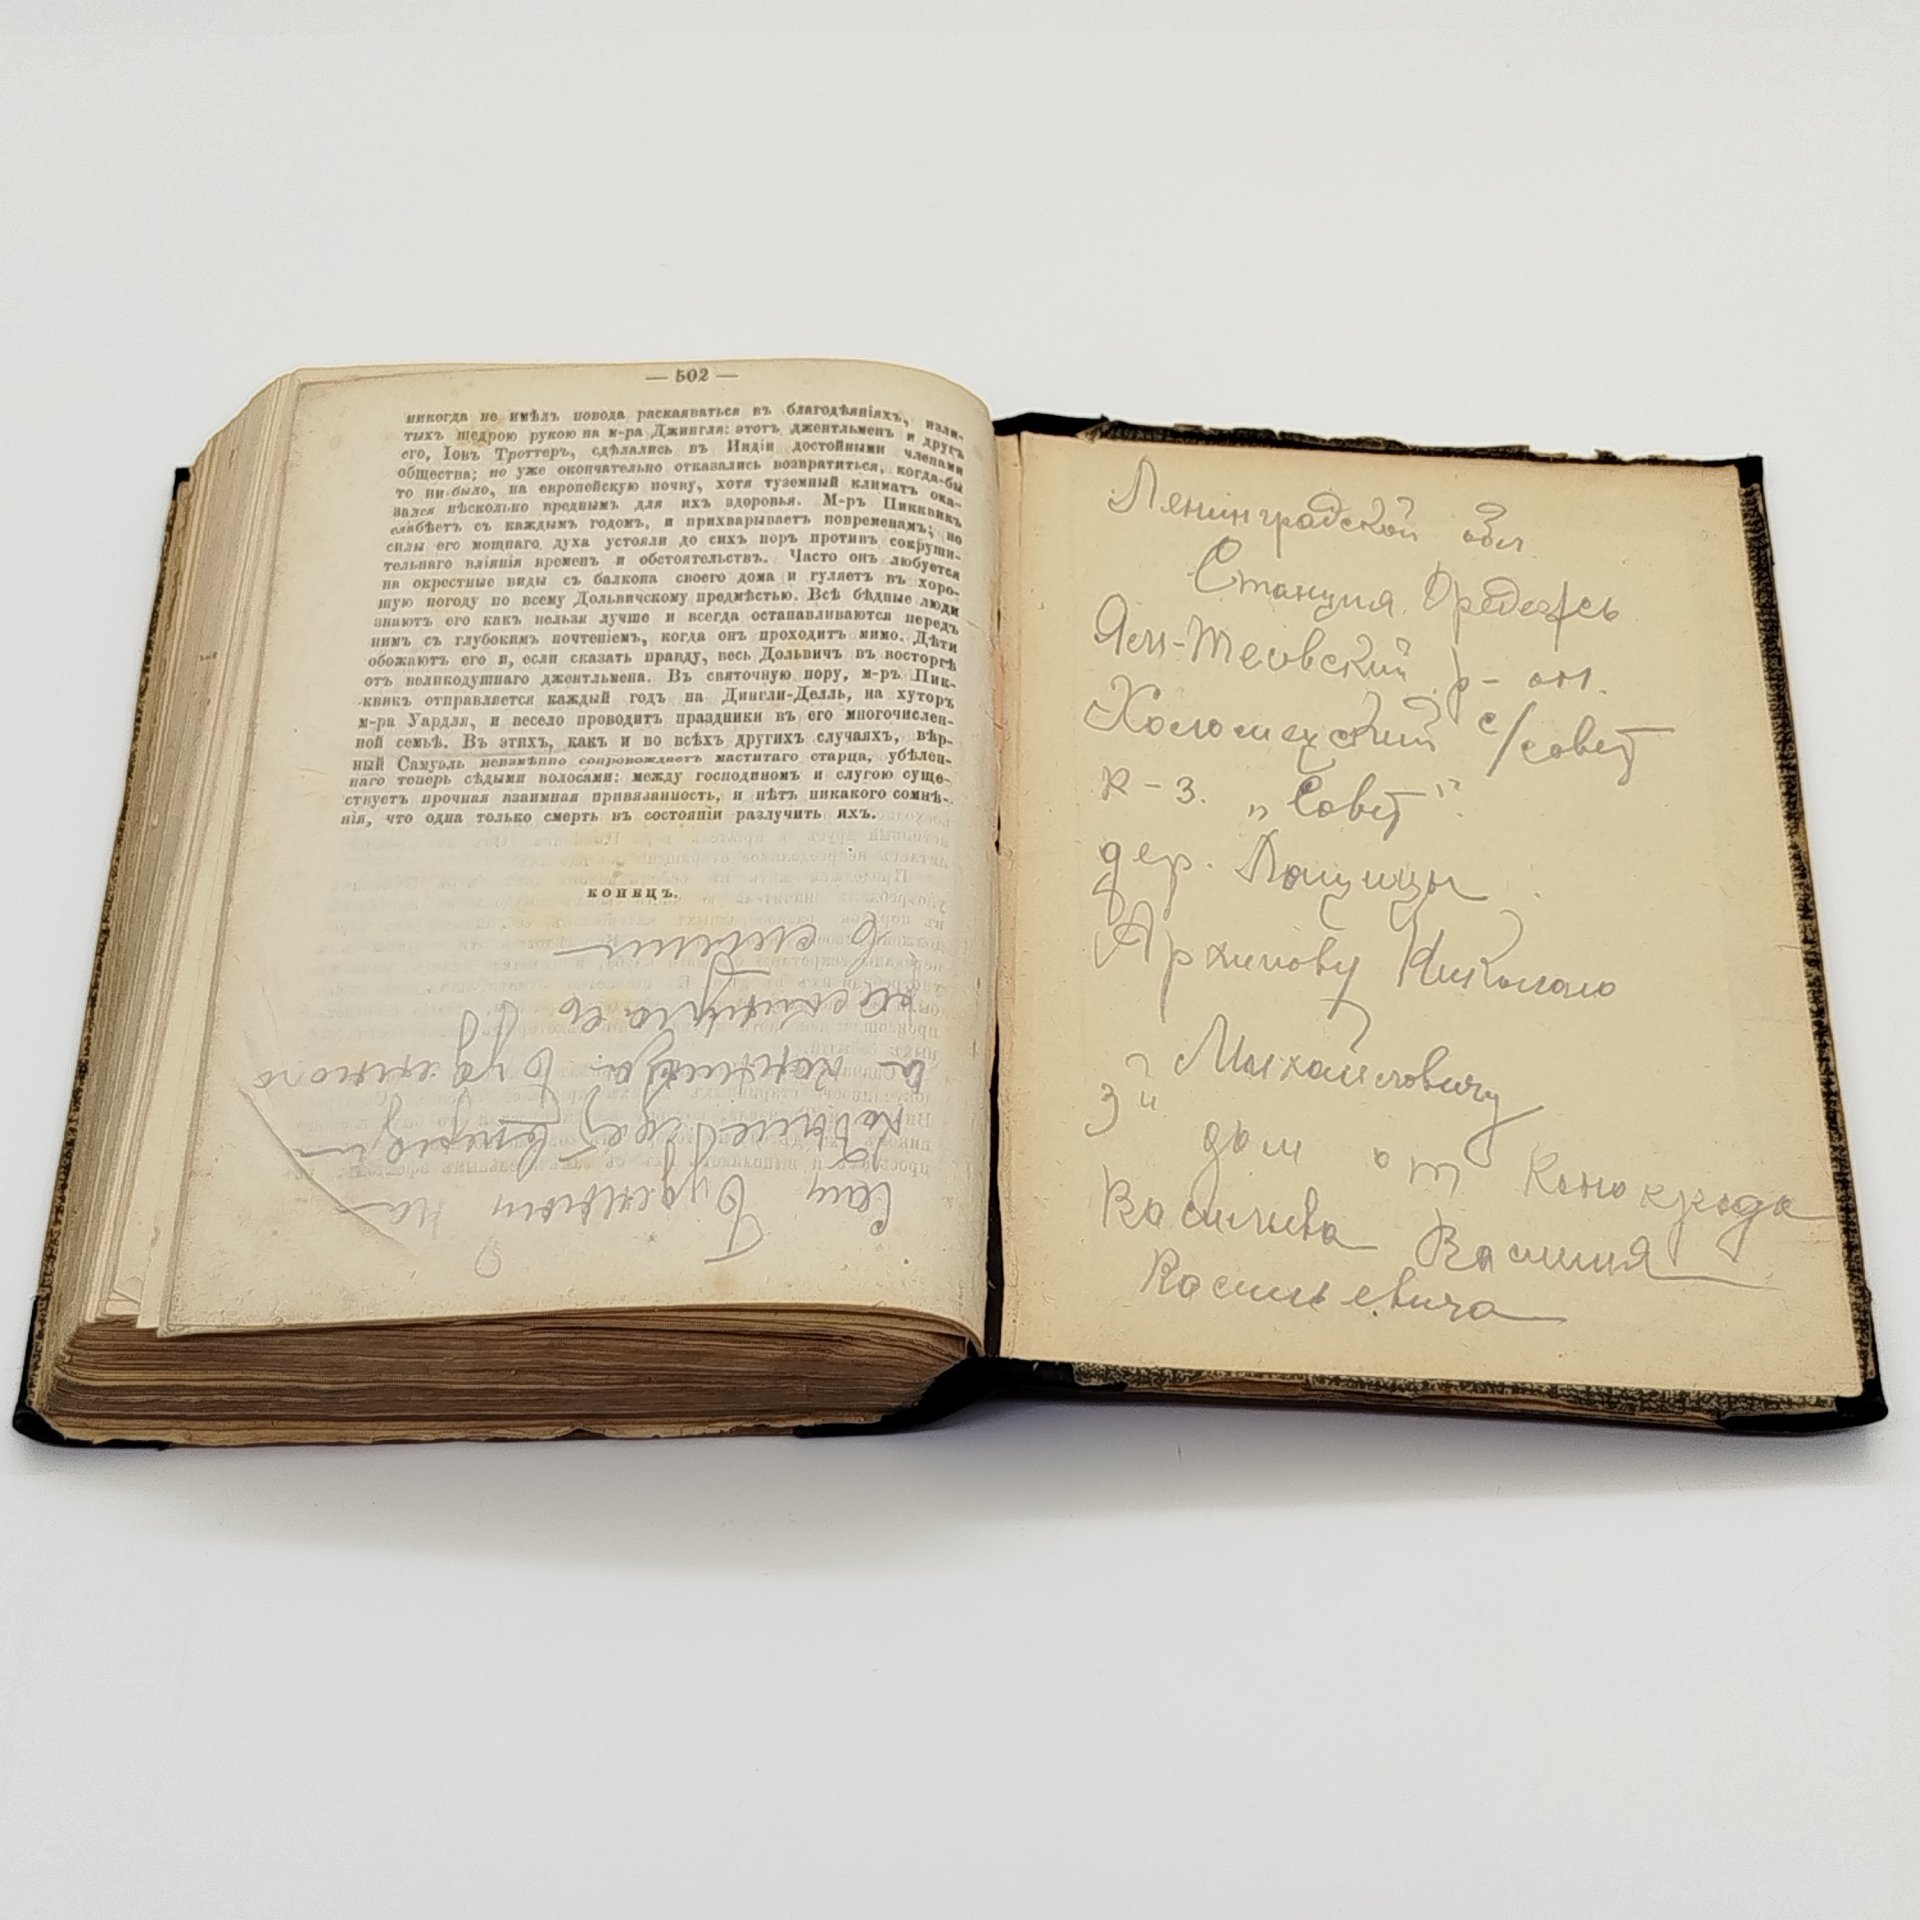 — 502 —
никогда не имѣлъ повода раскаяваться въ благодѣяніяхъ, изли-
тыхъ щедрою рукою на м-ра Джингля: этотъ джентльменъ и другъ
его, Іовъ Троттеръ, сдѣлались въ Индіи достойными членами
общества; но уже окончательно отказались возвратиться, когда-бы
то ни было, на европейскую почву, хотя туземный климатъ ока-
зался нѣсколько вреднымъ для ихъ здоровья. М-ръ Пикквикъ
слабѣетъ съ каждымъ годомъ, и прихварываетъ повременамъ; но
силы его мощнаго духа устояли до сихъ поръ противъ сокруши-
тельнаго вліянія временъ и обстоятельствъ. Часто онъ любуется
на окрестные виды съ балкона своего дома и гуляетъ въ хоро-
шую погоду по всему Дольвичскому предмѣстью. Всѣ бѣдные люди
знаютъ его какъ нельзя лучше и всегда останавливаются передъ
нимъ съ глубокимъ почтеніемъ, когда онъ проходитъ мимо. Дѣти
обожаютъ его и, если сказать правду, весь Дольвичъ въ восторгѣ
отъ великодушнаго джентльмена. Въ святочную пору, м-ръ Пик-
квикъ отправляется каждый годъ на Дингли-Делль, на хуторъ
м-ра Уардля, и весело проводитъ праздники въ его многочислен-
ной семьѣ. Въ этихъ, какъ и во всѣхъ другихъ случаяхъ, вѣр-
ный Самуэль неизмѣнно сопровождаетъ маститаго старца, убѣлен-
наго теперь сѣдыми волосами: между господиномъ и слугою суще-
ствуетъ прочная взаимная привязанность, и нѣтъ никакого сомнѣ-
нія, что одна только смерть въ состояніи разлучить ихъ.
КОНЕЦЪ.
Сам Буденный на
кобыле
а конница Буденного
в степи
Ленинградской обл.
Станция Оредежь
Ям-Тесовский р-он.
Холомецкий с/совет
к-з. „Совет".
дер. Лощицы
Архипову Николаю
Михайловичу
3й дом от
Васильева Василия
Васильевича